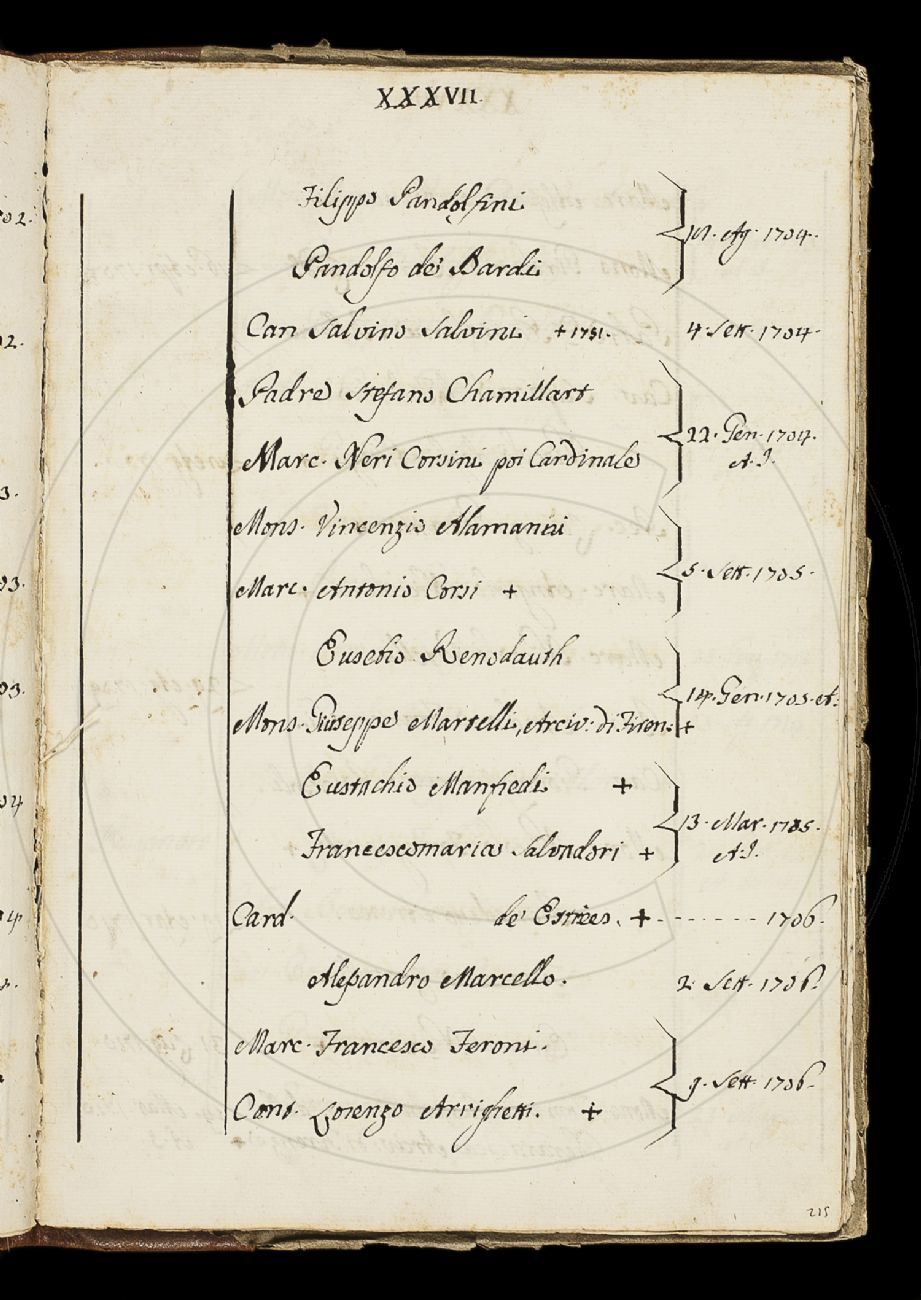 XXXVII.
Filippo Pandolfini
Pandolfo de' Bardi
Ag. 1704.
Can Salvino Salvini + 1751. 4. Sett. 1704.
Padre Stefano Chamillart
Marc. Neri Corsini poi Cardinale
22. Gen. 1704.
A. I.
Mons. Vincenzio Alamanni
Marc. Antonio Corsi +
5. Sett. 1705.
Eusebio Renodauth
14. Gen. 1705. A.
Mons. Giuseppe Martelli, Arciv: di Firen. +
Eustachio Manfredi +
13. Mar. 1705.
A. I.
Francescomaria Salvadori +
Card. de' Estrees. + - - - - - - - - 1706.
Alessandro Marcello. 2. Sett. 1706.
Marc. Francesco Feroni.
9. Sett. 1706.
Cons. Lorenzo Arrighetti. +
215